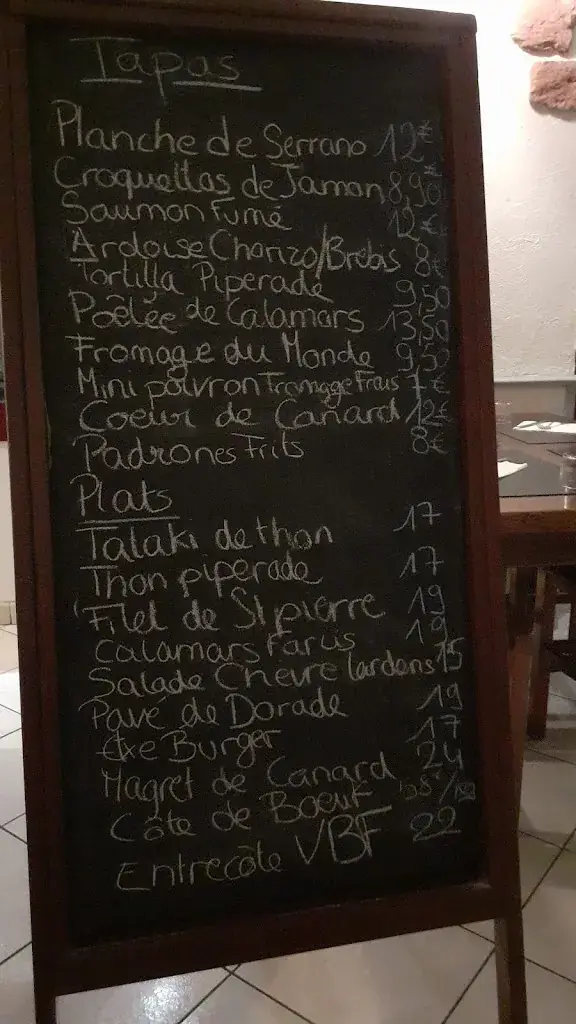 Tapas
Planche de Serrano 12€
Croquettas de Jamon 8,90
Saumon Fumé 12€
Ardoise Chorizo/Brebis 8€
Tortilla Piperade 9,50
Poêlée de Calamars 13,50
Fromage du Monde 9,50
Mini poivron Fromage Frais 7€
Coeur de Canard 12€
Padrones Frits 8€
Plats
Tataki de thon 17
Thon piperade 17
Filet de St pierre 19
Calamars Farcis 19
Salade Chevre lardons 15
Pavé de Dorade 19
Axe Burger 17
Magret de Canard 24
Côte de Boeuf
Entrecôte VBF 22